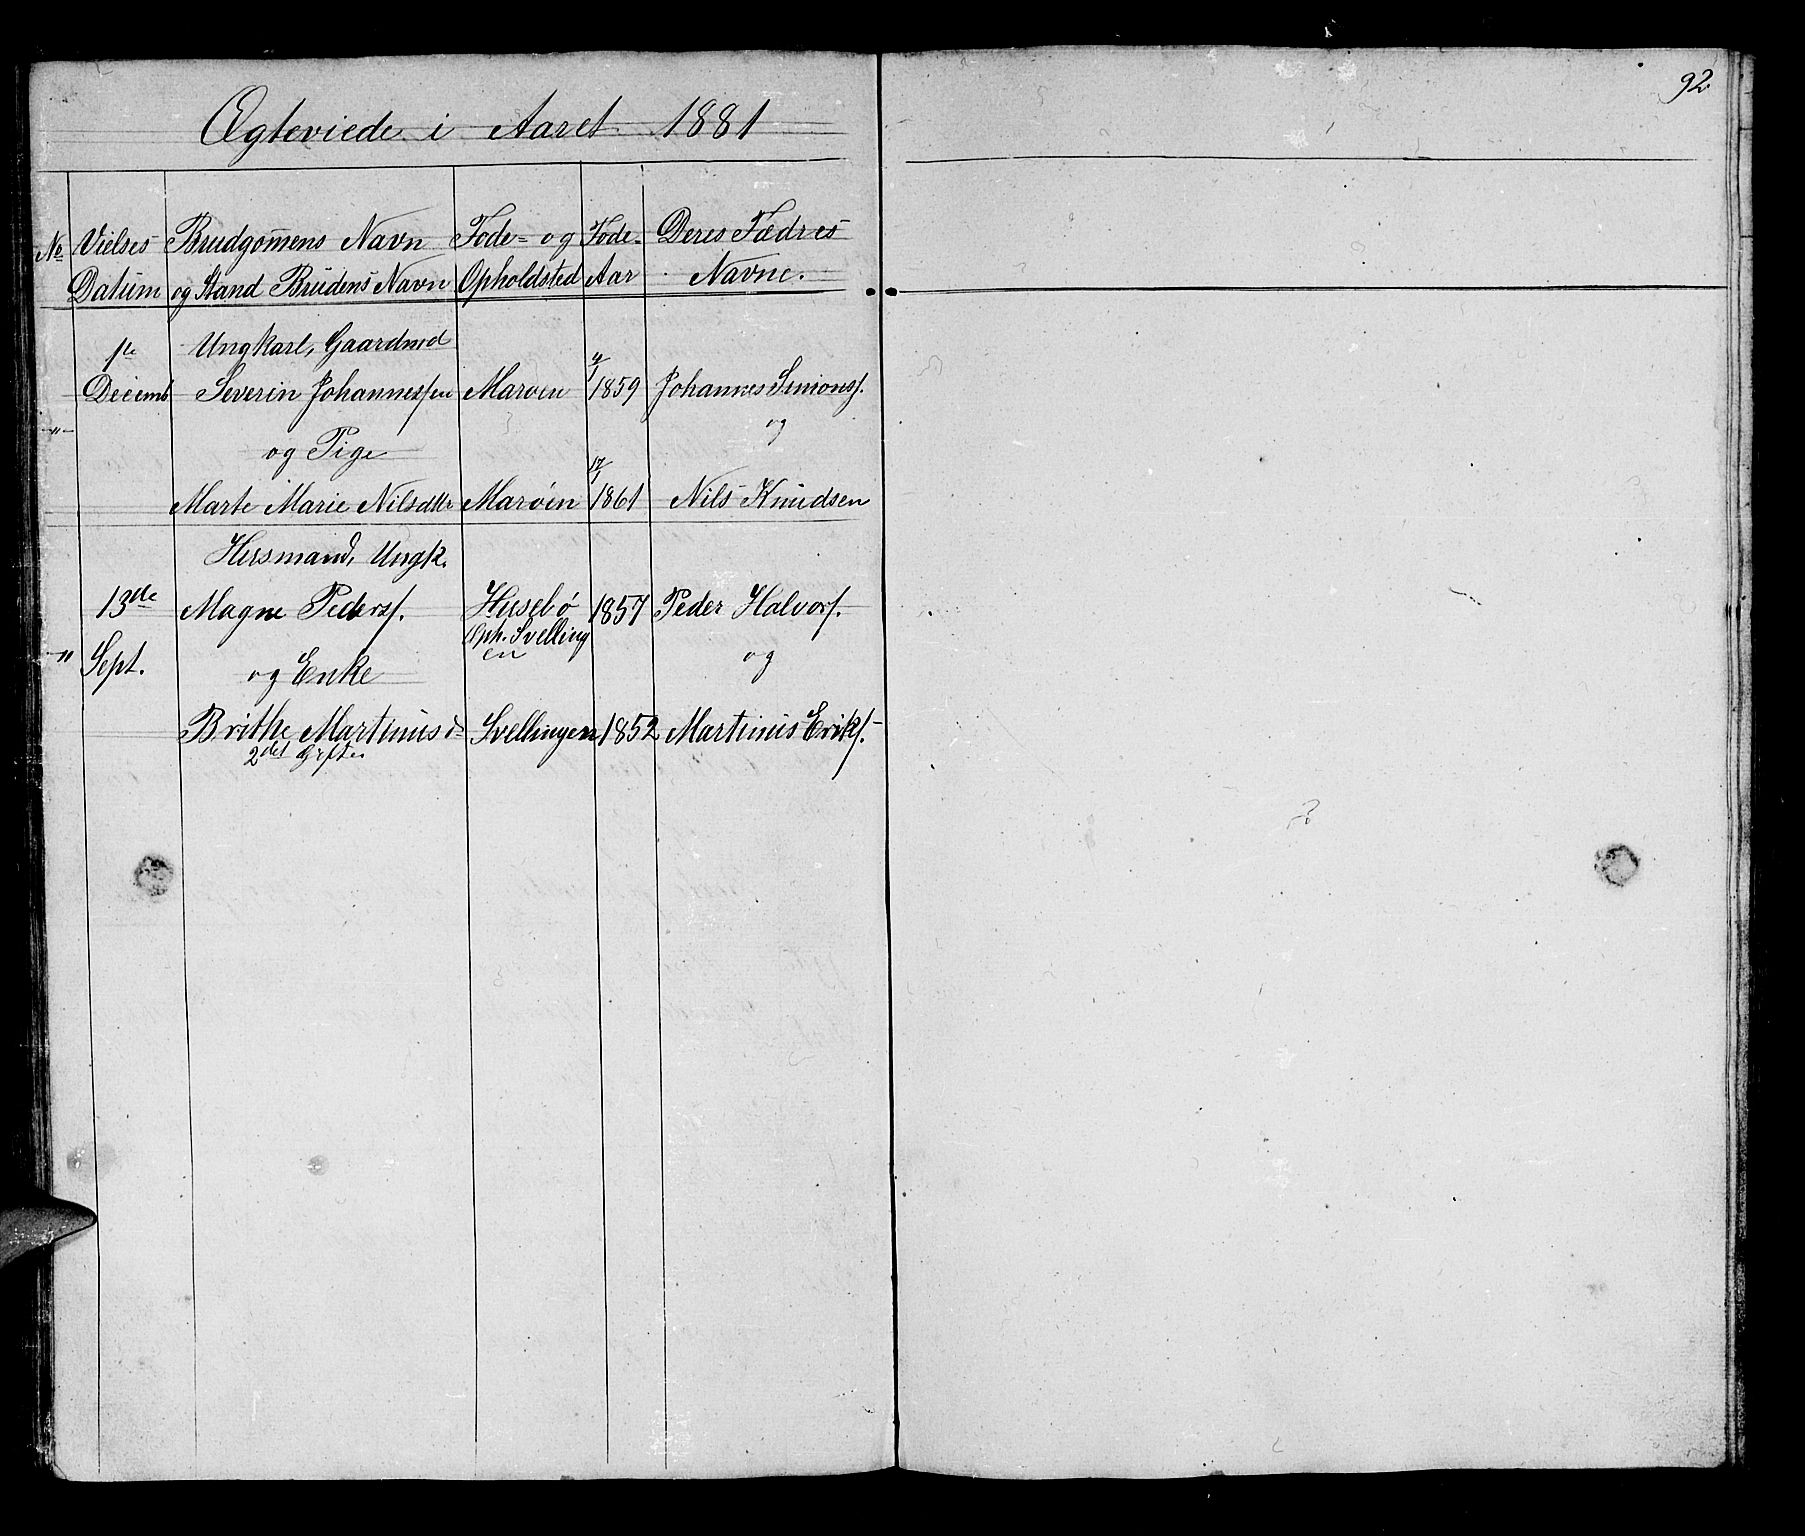 92
Ægteviede i Aaret 1881
No Vielses Datum | Brudgom̄ens Navn og Stand Brudens Navn | Føde- og Opholdsted | Føde-Aar | Deres Fædres Navne.
Ungkarl, Gaardmd
1te Decemb Severin Johannessen Marøen 4/1 1859 Johannes Simons.
-"- og Pige og
Marte Marie Nilsdtr Marøen 17/1 1861 Nils Knudsen
Husmand, Ungk.
13de Magne Peders. Husebø 1857 Peder Halvors.
Oph. Svelling
en
-" Sept. og Enke og
Brithe Martinusd Svellingen 1852 Martinus Eriks.
2det Gifte